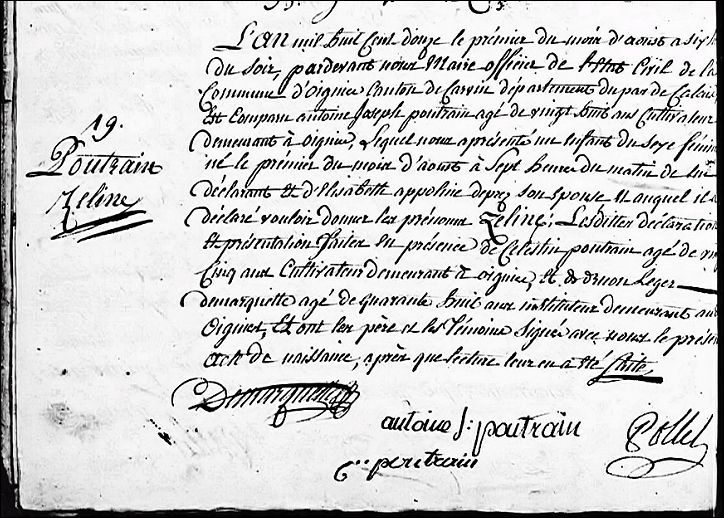 19.
Poutrain
Zeline
L'an mil huit Cent douze le prémier du mois d'aoust a six
du soir, pardevant nous Maire officier de l'Etat Civil de la
Commune d'Oignies Canton de Carvin département du pas de Calais
Est Comparu antoine Joseph poutrain agé de vingt huit ans Cultivateur
demeurant à Oignies, Lequel nous a présenté un Enfant du Sexe féminin
né le prémier du mois d'aoust à Sept heures du matin de lui
déclarant Et d'Elisabeth appoline depre, son Epouse Et auquel il a
déclaré vouloir donner les prénoms Zeline; Lesdittes déclaration
Et présentation faites En présence de Celestin poutrain agé de
Cinq ans Cultivateur demeurant à oignies, Et de druon Leger
demarquette agé de quarante huit ans instituteur demeurant audit
Oignies, Et ont les père et les témoins Signés avec nous le présent
acte de naissance, après que lecture leur en a été faite,
Demarquette
antoine J: poutrain
poutrain
Pollet